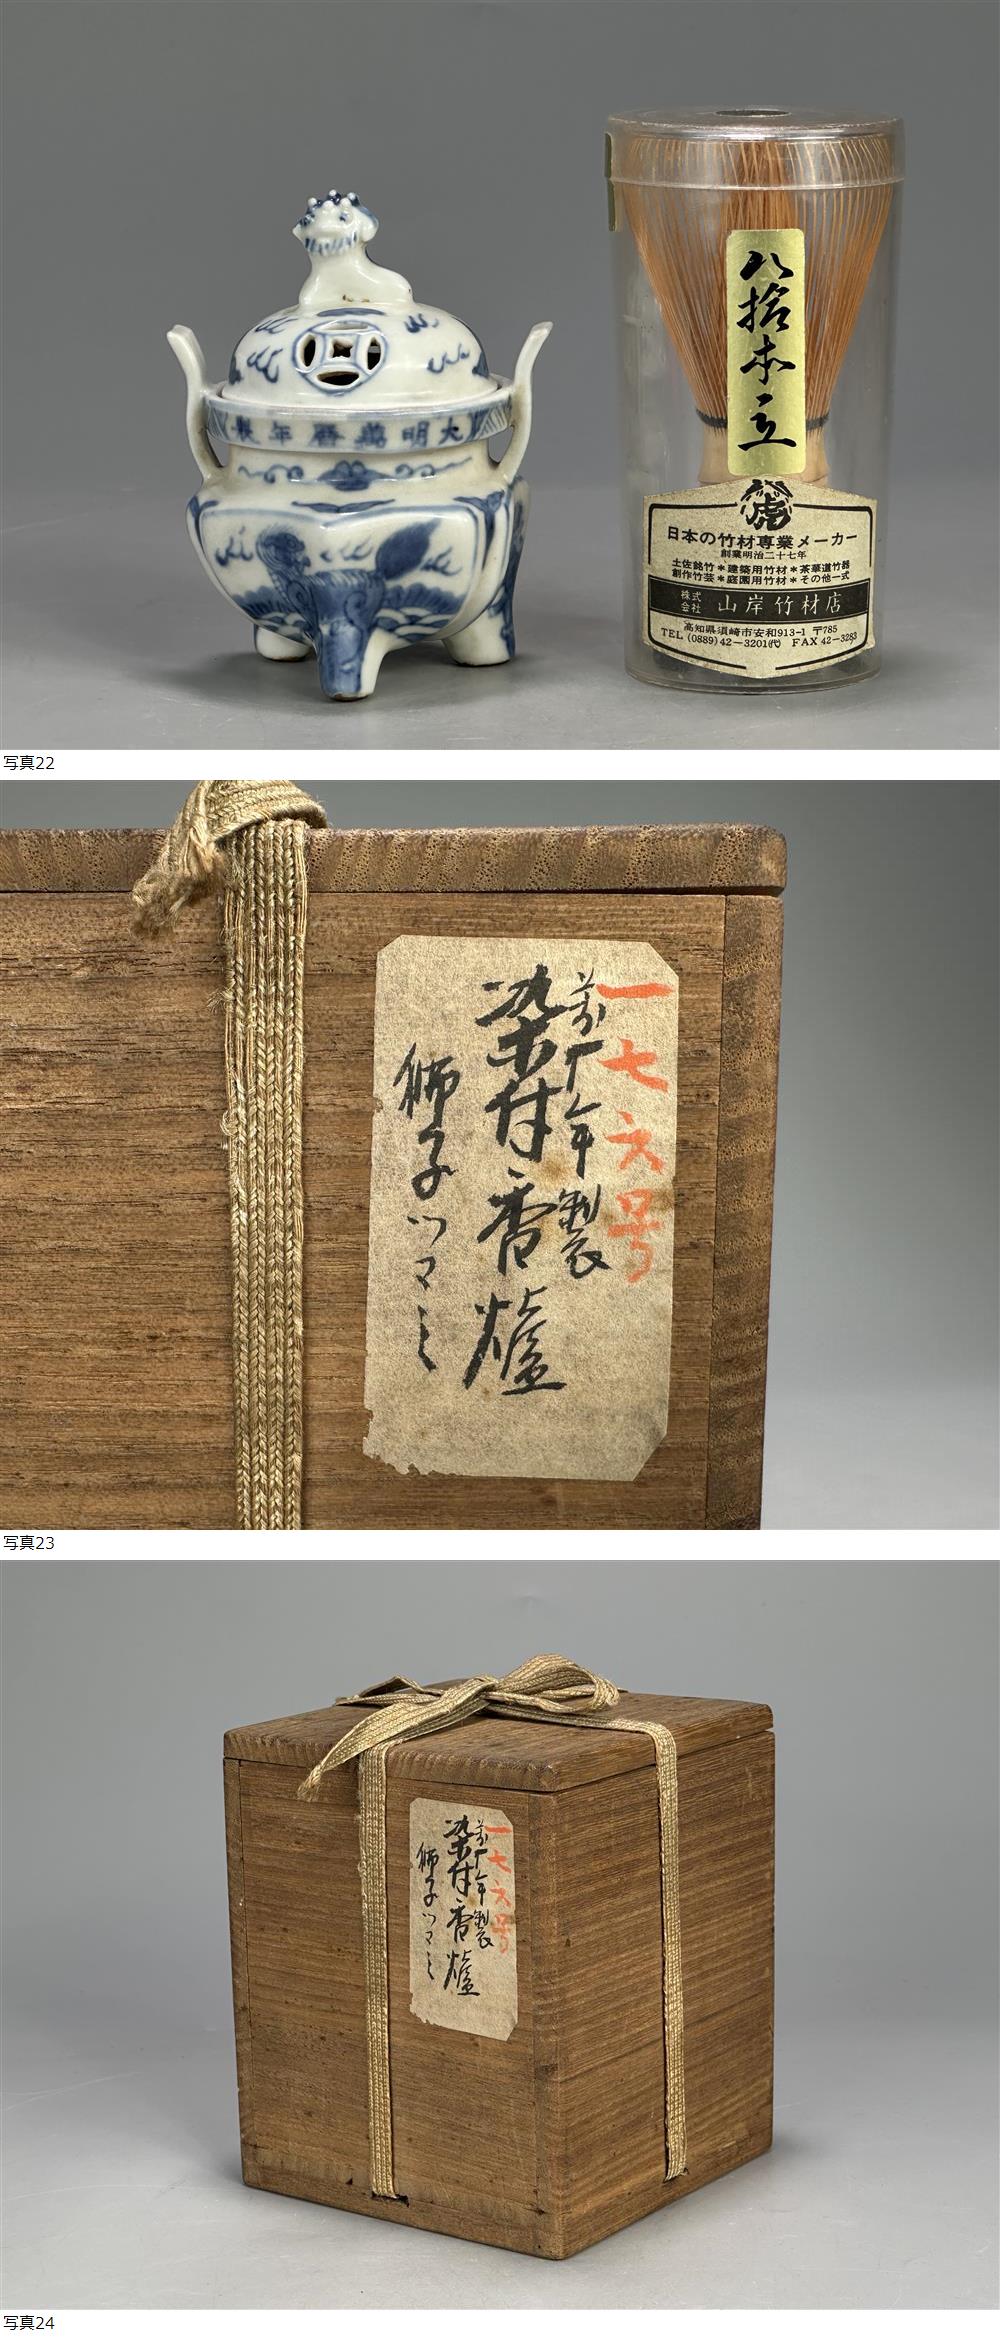 大明萬曆年製
八拾本立
虎
日本の竹材専業メーカー
創業明治二十七年
土佐銘竹＊建築用竹材＊茶華道竹器
創作竹芸＊庭園用竹材＊その他一式
株式会社 山岸竹材店
高知県須崎市安和913-1 〒785
TEL (0889)42-3201(代) FAX 42-3283
写真22
一七六号
万丁年製
染付香爐
獅子ツマミ
写真23
一七六号
万丁年製
染付香爐
獅子ツマミ
写真24